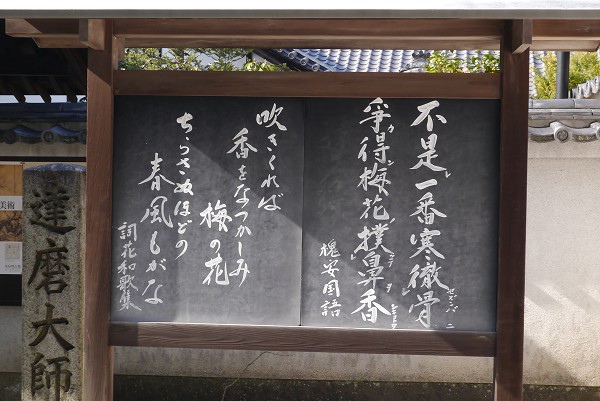 不是一番寒徹骨
争得梅花撲鼻香
槐安国語
吹きくれば
香をなつかしみ
梅の花
ちらさぬほどの
春風もがな
詞花和歌集
達磨大師
美術